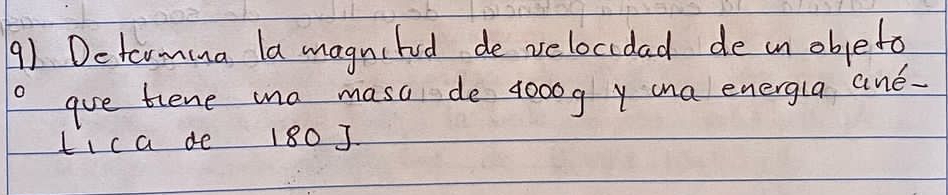 9) Determina la magnitud de velocidad de un objeto
que tiene una masa de 4000g y una energía ciné-
tica de 180 J.